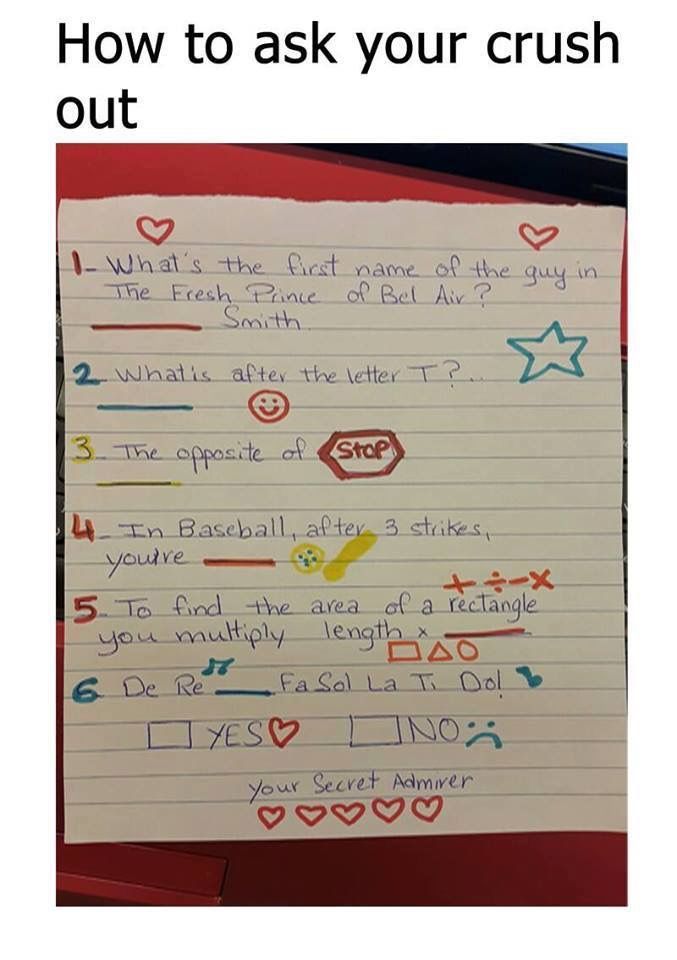 How to ask your crush
out
1- What's the first name of the guy in
The Fresh Prince of Bel Air?
Smith
2 What is after the letter T?..
3- The opposite of STOP
4- In Baseball, after 3 strikes,
you're
+ ÷ - x
5- To find the area of a rectangle
you multiply length x
6 De Re Fa Sol La Ti Do!
YES NO
Your Secret Admirer